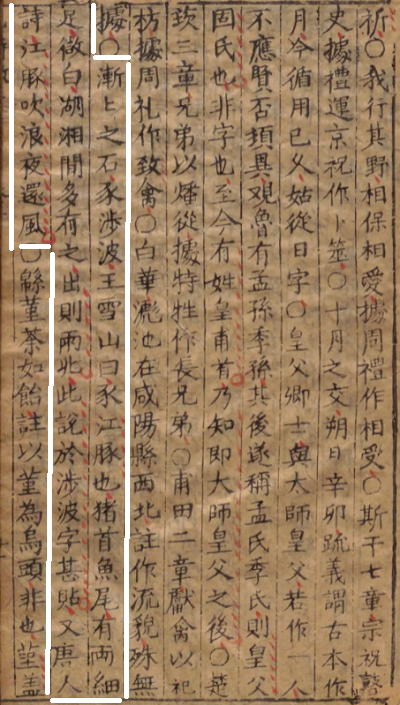 祈○我行其野相保相愛據周禮作相受○斯干七章宗祝瞽
史據禮運宗祝作卜筮○十月之交朔日辛卯疏義謂古本作
月今循用已久姑從日字○皇父卿士與太師皇父若作一人
不應賢否頓異观魯有孟孫季孫其後遂稱孟氏季氏則皇父
固氏也非字也至今有姓皇甫者乃知即大師皇父之後○楚
茨三章兄弟以燔從據特牲作長兄弟○甫田二章獻禽以祀
祊據周礼作致禽○白華滮池在咸陽縣西北註作流貌殊無
據○漸ㄣ之石豕涉波王雪山曰豕江豚也猪首魚尾有兩細
足微白湖湘間多有之出則雨兆此說於涉波字甚貼又唐人
詩江豚吹浪夜還風○緜堇荼如飴註以堇為烏頭非也堇盖